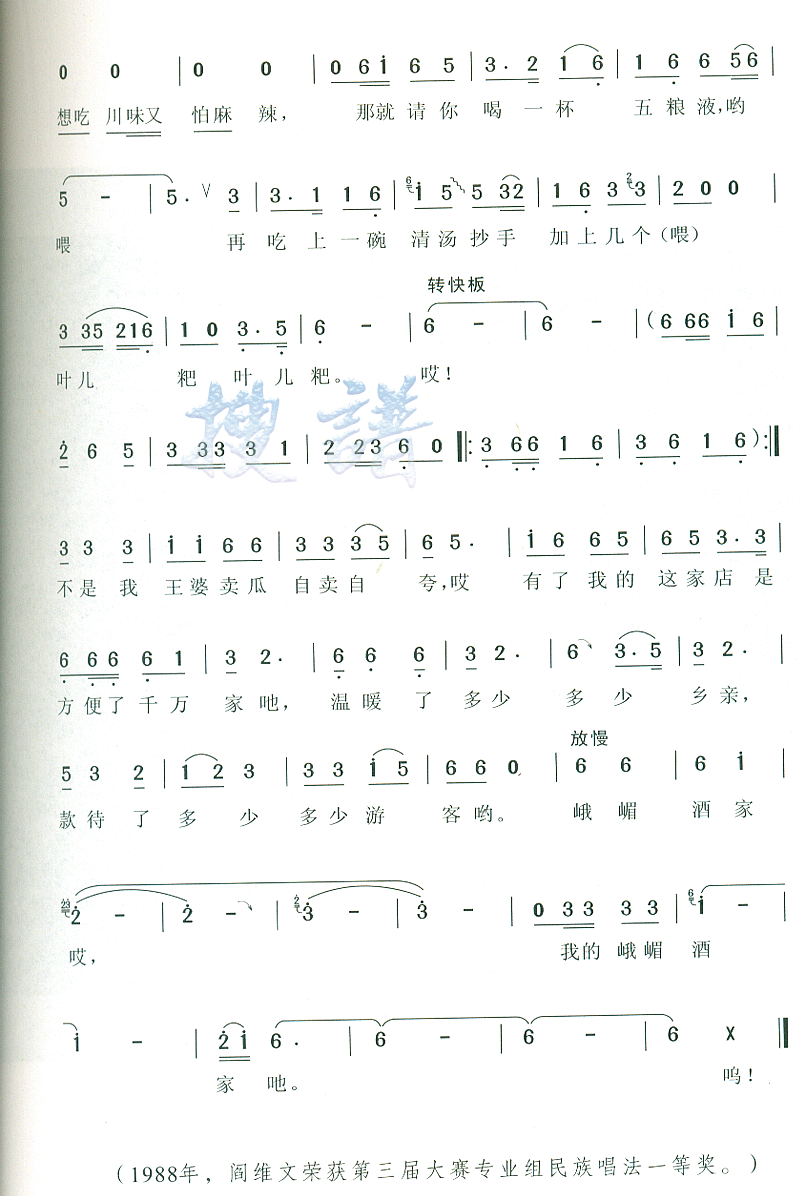 0 0 | 0 0 | 0 6 i 6 5 | 3 · 2 1 6 | 1 6 6 5 6 |
想吃 川味又 怕麻 辣， 那就 请 你 喝 一 杯 五 粮 液，哟
5 – | 5 · ∨ 3 | 3 · 1 1 6 | 6 i 5 5 3 2 | 1 6 3 2 3 | 2 0 0 |
喂 再 吃 上 一 碗 清 汤 抄 手 加 上 几 个（喂）
转快板
3 3 5 2 1 6 | 1 0 3 · 5 | 6 – | 6 – | 6 – | (6 6 6 i 6 |
叶儿 粑 叶 儿 粑。 哎！
搜谱
2 6 5 | 3 3 3 3 1 | 2 2 3 6 0 ‖: 3 6 6 1 6 | 3 6 1 6 ) :‖
3 3 3 | i i 6 6 | 3 3 3 5 | 6 5 · | i 6 6 5 | 6 5 3 · 3 |
不是 我 王 婆 卖 瓜 自 卖 自 夸，哎 有 了 我 的 这 家 店 是
6 6 6 6 1 | 3 2 · | 6 6 · | 3 2 · | 6 3 · 5 | 3 2 · |
方 便 了 千 万 家 吔， 温 暖 了 多 少 多 少 乡 亲，
放慢
5 3 2 | 1 2 3 | 3 3 i 5 | 6 6 0 | 6 6 | 6 i |
款 待 了 多 少 多 少 游 客 哟。 峨 嵋 酒 家
23 2 – | 2 – | 2 – | 2 3 – | 3 – | 0 3 3 3 3 | 6 i – |
哎， 我的 峨 嵋 酒
i – | 2 i 6 · | 6 – | 6 – | 6 X ‖
家 吔。 呜！
（1988年，阎维文荣获第三届大赛专业组民族唱法一等奖。）